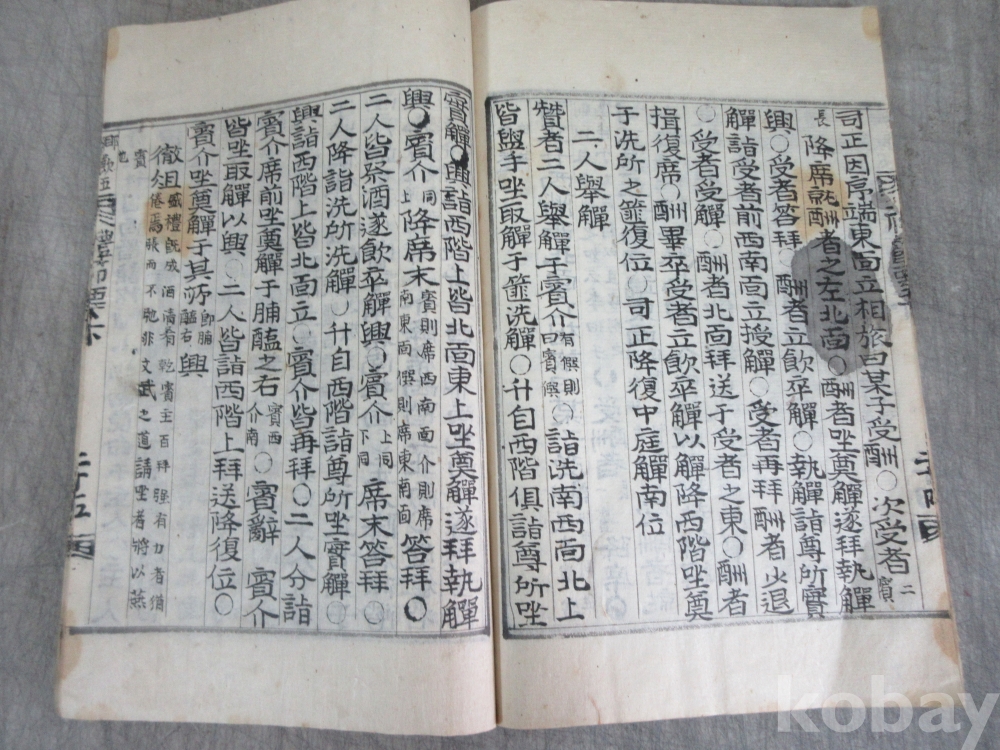 司正因序端東面立相旅曰某子受酬〇次受者賓二
長降席就酬者之左北面〇酬者坐奠觶遂拜執觶
興〇受者荅拜〇酬者立飮卒觶〇執觶詣尊所實
觶詣受者前西南面立授觶〇受者再拜酬者少退
〇受者受觶〇酬者北面拜送于受者之東〇酬者
揖復席〇酬畢卒受者立飮卒觶以觶降西階坐奠
于洗所之篚復位〇司正降復中庭觶南位
二人擧觶
贊者二人擧觶于賓介有僎則曰賓僎〇詣洗南西面北上
皆盥手坐取觶于篚洗觶〇升自西階俱詣尊所坐
實觶〇興詣西階上皆北面東上坐奠觶遂拜執觶
興〇賓介同上降席末賓則席西南面介則席南東面僎則席東南面荅拜〇
二人皆祭酒遂飮卒觶興〇賓介上同下同席末荅拜〇
二人降詣洗所洗觶〇升自西階詣尊所坐實觶〇
興詣西階上皆北面立〇賓介皆再拜〇二人分詣
賓介席前坐奠觶于脯醢之右賓西介南〇賓辭賓介
皆坐取觶以興〇二人皆詣西階上拜送降復位〇
賓介坐奠觶于其所卽脯醢右興
徹俎殽禮旣成酒淸肴乾賓主百拜强有力者猶倦焉張而不弛非文武之道請坐者將以燕
賓也
二十五
kobay